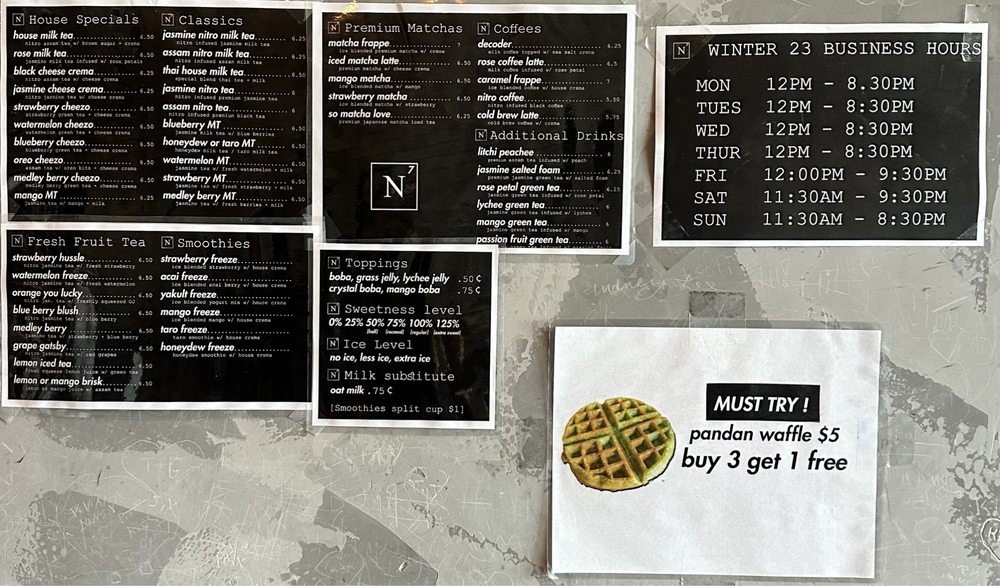 N House Specials
house milk tea 6.50
nitro assam tea w/ brown sugar + crema
rose milk tea 6.50
jasmine milk tea infused w/ rose petals
black cheese crema 6.50
nitro assam tea w/ cheese crema
jasmine cheese crema 6.50
nitro jasmine tea w/ cheese crema
strawberry cheezo 6.50
strawberry green tea + cheese crema
watermelon cheezo 6.50
watermelon green tea + cheese crema
blueberry cheezo 6.50
blueberry green tea + cheese crema
oreo cheezo 6.50
assam tea w/ oreo bits + cheese crema
medley berry cheezo 6.50
medley berry green tea + cheese crema
mango MT 6.50
jasmine tea w/ mango + milk
N Classics
jasmine nitro milk tea 6.25
nitro infused jasmine milk tea
assam nitro milk tea 6.25
nitro infused assam milk tea
thai house milk tea 6.25
special blend thai tea + milk
jasmine nitro tea 6
nitro infused premium jasmine tea
assam nitro tea 6
nitro infused premium black tea
blueberry MT 6.50
jasmine milk tea w/ blue berries
honeydew or taro MT 6.50
honeydew milk tea / taro milk tea
watermelon MT 6.50
jasmine tea w/ fresh watermelon + milk
strawberry MT 6.50
jasmine tea w/ fresh strawberry + milk
medley berry MT 6.50
jasmine tea w/ fresh berries + milk
N Premium Matchas
matcha frappe 7
ice blended premium matcha w/ crema
iced matcha latte 6.50
premium matcha w/ cheese crema
mango matcha 6.50
ice blended matcha w/ mango
strawberry matcha 6.50
ice blended matcha w/ strawberry
so matcha love 6.25
premium japanese matcha iced tea
N7
N Coffees
decoder 6.25
milk coffee topped w/ sea salt crema
rose coffee latte 6.5
milk coffee infused w/ rose petal
caramel frappe 7
ice blended coffee w/ house crema
nitro coffee 5.50
nitro infused black coffee
cold brew latte 5.75
cold brew coffee w/ crema
N Additional Drinks
litchi peachee 6
premium assam tea infused w/ peach
jasmine salted foam 6.25
premium jasmine green tea w/ salted foam
rose petal green tea 6.25
jasmine green tea infused w/ rose petal
lychee green tea 6
jasmine green tea infused w/ lychee
mango green tea 6
jasmine green tea infused w/ mango
passion fruit green tea 6
N WINTER 23 BUSINESS HOURS
MON 12PM - 8.30PM
TUES 12PM - 8:30PM
WED 12PM - 8:30PM
THUR 12PM - 8:30PM
FRI 12:00PM - 9:30PM
SAT 11:30AM - 9:30PM
SUN 11:30AM - 8:30PM
N Fresh Fruit Tea
strawberry hussle 6.50
nitro jasmine tea w/ fresh strawberry
watermelon freeze 6.50
nitro jasmine tea w/ fresh watermelon
orange you lucky 6.50
nitro jas. tea w/ freshly squeezed OJ
blue berry blush 6.50
nitro jasmine tea w/ blue berry
medley berry 6.50
jasmine tea w/ strawberry + blue berry
grape gatsby 6.50
nitro jasmine tea w/ red grapes
lemon iced tea 6.50
fresh squeeze lemon juice w/ green tea
lemon or mango brisk 6.50
lemon or mango juice w/ assam tea
N Smoothies
strawberry freeze
ice blended strawberry w/ house crema
acai freeze
ice blended acai berry w/ house crema
yakult freeze
ice blended yogurt mix w/ house crema
mango freeze
ice blended mango w/ house crema
taro freeze
taro smoothie w/ house crema
honeydew freeze
honeydew smoothie w/ house crema
N Toppings
boba, grass jelly, lychee jelly .50¢
crystal boba, mango boba .75¢
N Sweetness level
0% 25% 50% 75% 100% 125%
[half] [normal] [regular] [extra sweet]
N Ice Level
no ice, less ice, extra ice
N Milk substitute
oat milk .75¢
[Smoothies split cup $1]
MUST TRY !
pandan waffle $5
buy 3 get 1 free